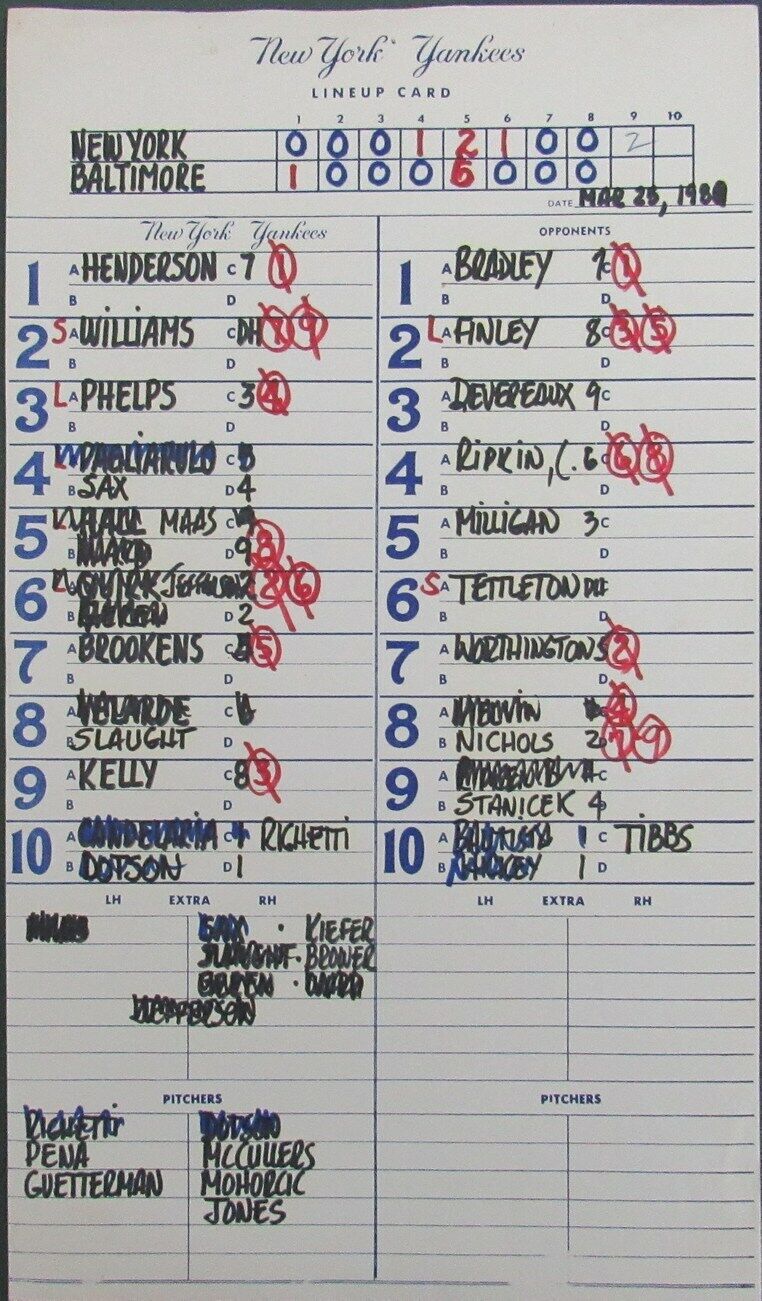 New York Yankees
LINEUP CARD
1 2 3 4 5 6 7 8 9 10
NEW YORK 0 0 0 1 2 1 0 0 2
BALTIMORE 1 0 0 0 6 0 0 0
DATE MAR 25, 1989
New York Yankees
1 A HENDERSON C 7 1
B D
2 S A WILLIAMS C DH 1 9
B D
3 L A PHELPS C 3 4
B D
4 L A PAGLIARULO C 5
B SAX D 4
5 L A HALL MAAS C 9
B WARD D 9 3
6 L A QUIRK JEFFERSON 2 2 6
B GEREN D 2
7 A BROOKENS C 5
B D
8 A VELARDE C 6
B SLAUGHT D
9 A KELLY C 8 3
B D
10 A CANDELARIA C 1 RIGHETTI
B DOTSON D 1
LH EXTRA RH
MAAS SAX · KIEFER
SLAUGHT · BROWER
GEREN · WARD
JEFFERSON
PITCHERS
RIGHETTI DOTSON
PENA MCCULLERS
GUETTERMAN MOHORCIC
JONES
OPPONENTS
1 A BRADLEY 7 C 1
B D
2 L A FINLEY 8 C 3 5
B D
3 A DEVEREAUX 9 C
B D
4 A RIPKIN, C. 6 C 6 8
B D
5 A MILLIGAN 3 C
B D
6 S A TETTLETON DH
B D
7 A WORTHINGTON 5 2
B D
8 A MELVIN 4
B NICHOLS 2 7 9
9 A C
B STANICEK 4 D
10 A BAUTISTA 1 C TIBBS
B 1 D
LH EXTRA RH
PITCHERS